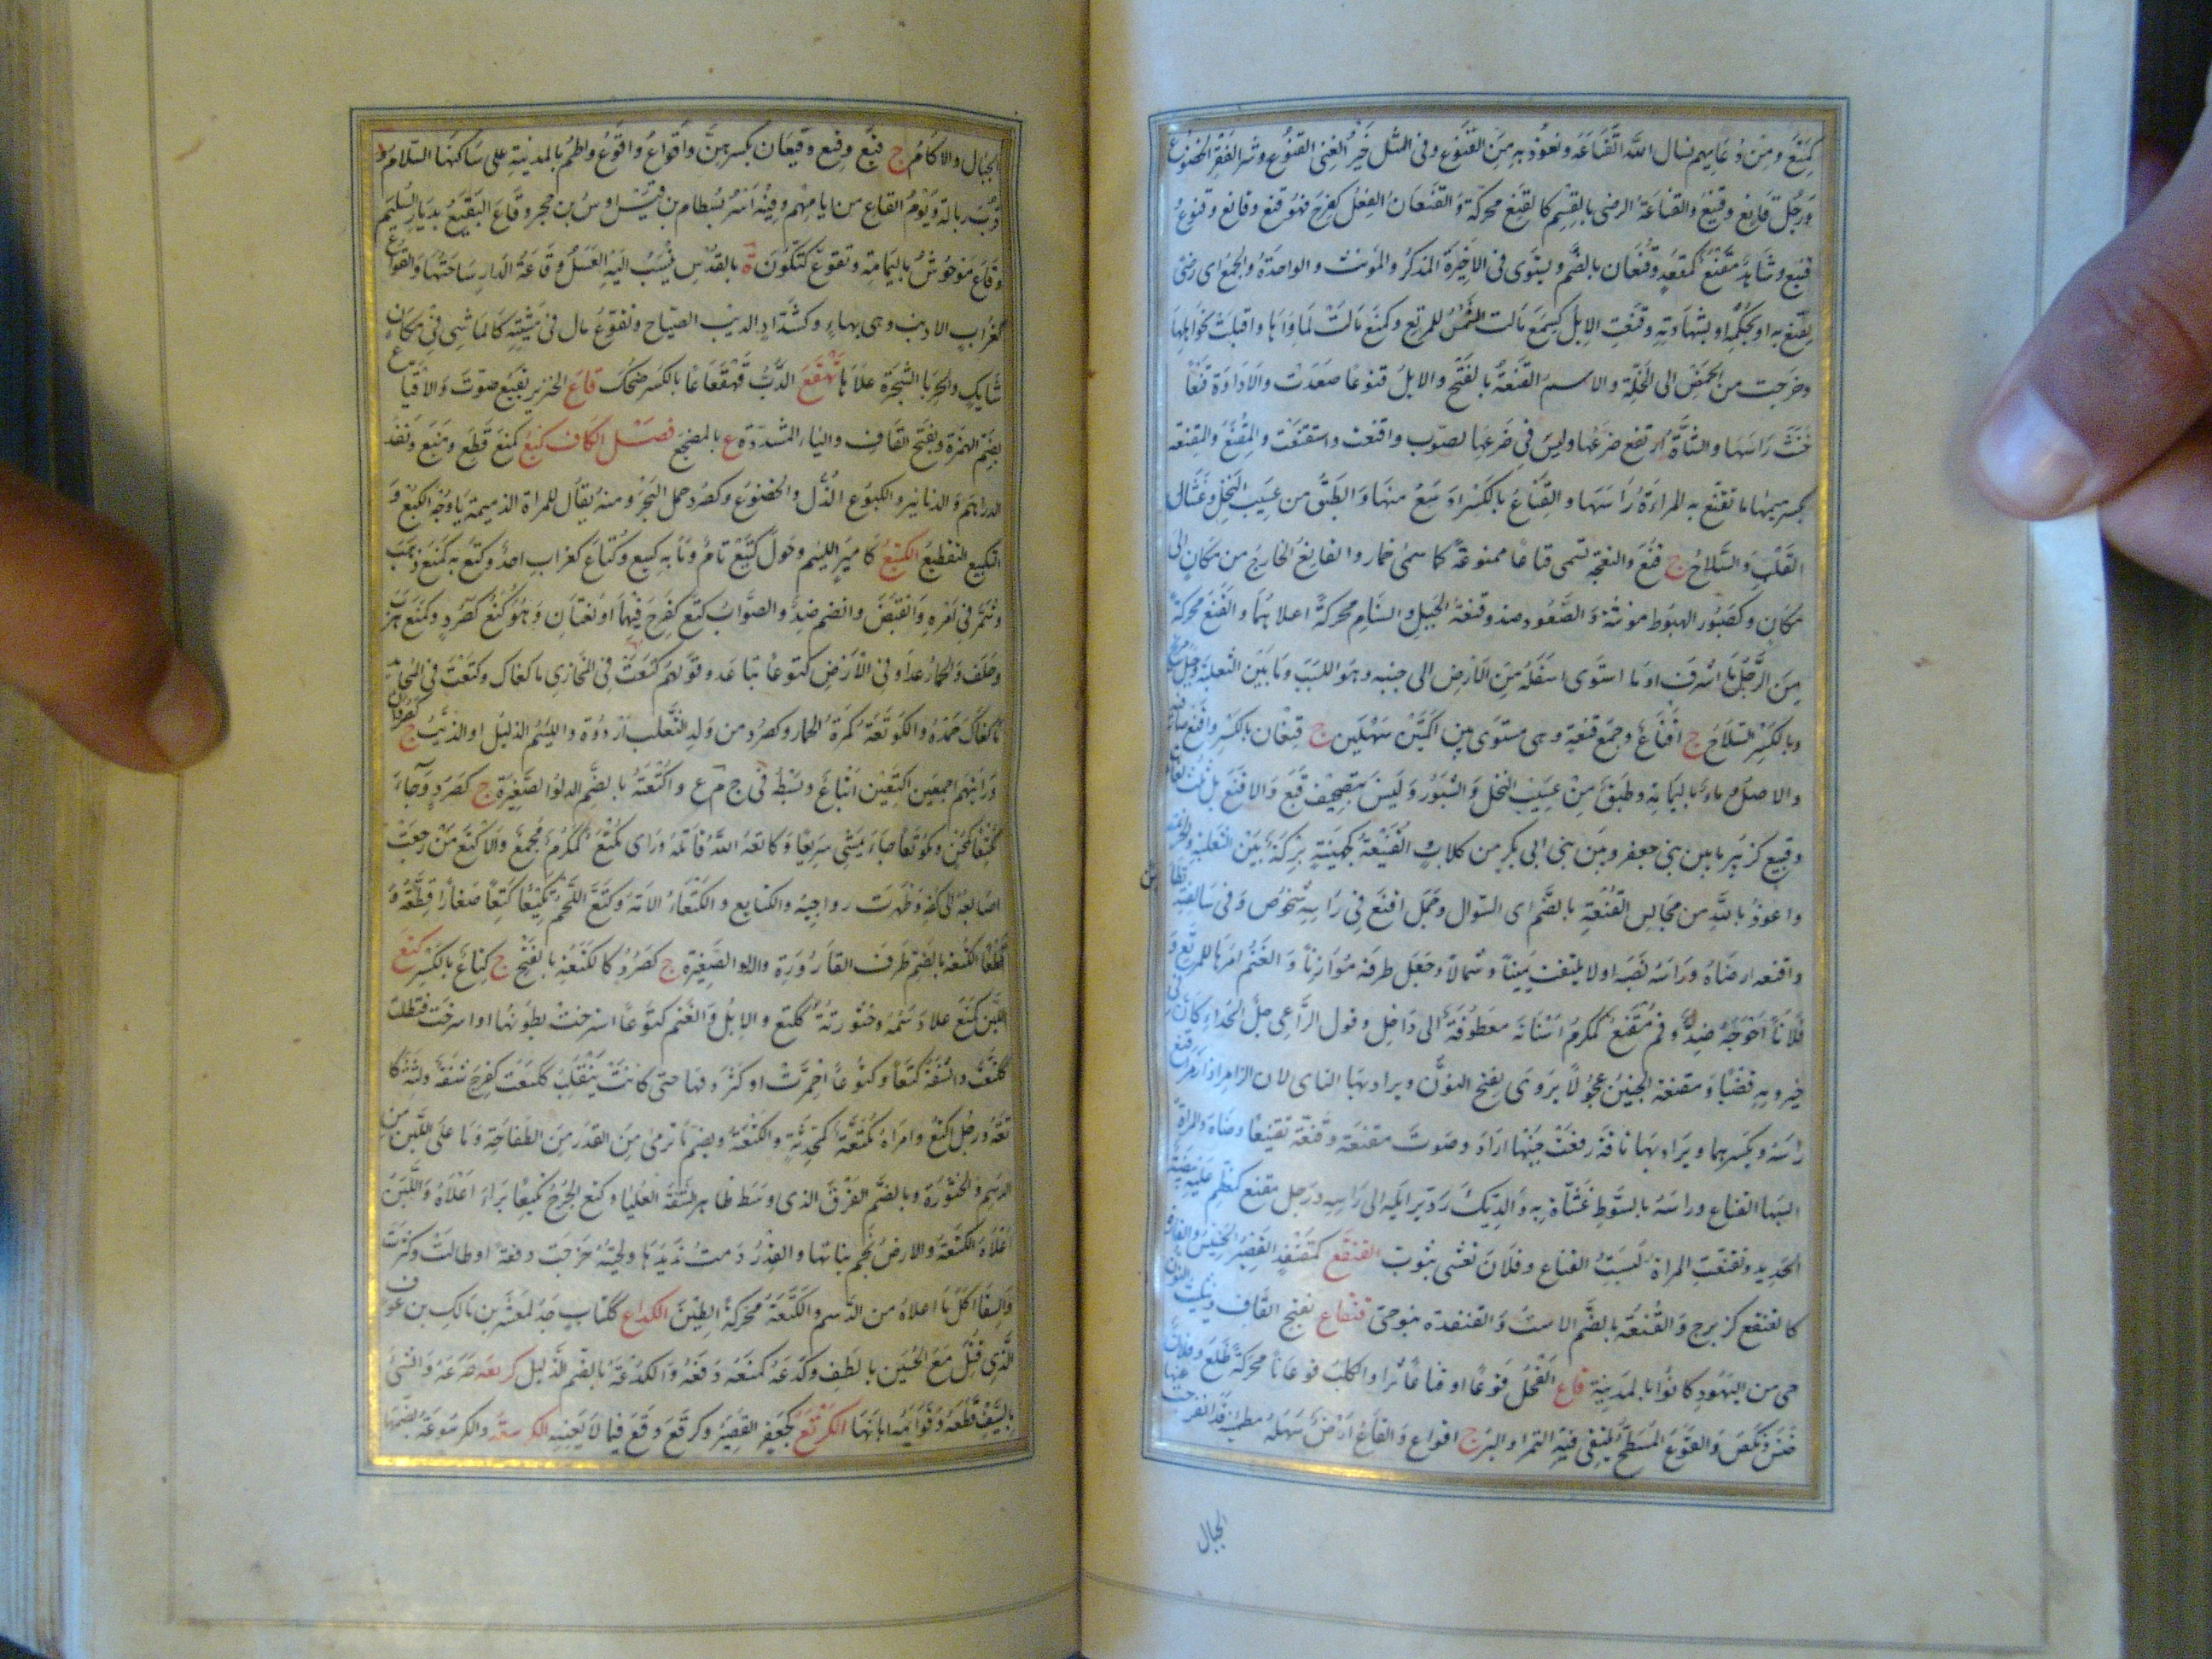 كمنع ومن دعايهم نسال الله القناعة ونعوذ به من القنوع وفى المثل خير الغنى القنوع وشر الفقر الخضوع
ورجل قانع وقنيع والقناعة الرضى بالقسم كالقنع محركة والقنعان الفعل كفرح فهو قنع وقانع وقنوع
قنيع وشاهد مقنع كمقعد وقنعان بالضم ويستوى فى الاخيرة المذكر والمونث والواحدة والجمع اى رضى
يقنع به او بحكمه او بشهادته وقنعت الابل كسمع مالت للمرتع وكمنع مالت لماواها واقبلت نحو اهلها
وخرجت من الحمض الى الخلة والاسم القنعة بالفتح والابل قنوعا صعدت والاداوة قنعا
خنث راسها والشاة ارتفع ضرعها وليس فى ضرعها تصوب واقنعت واستقنعت والمقنع والمقنعة
بكسر ميمهما ما تقنع به المراءة راسها والقناع بالكسر اوسع منها والطبق من عسيب النخل وغشاء
القلب والسلاح ج قنع والنعجة تسمى قناعا ممنوعة كما سمى خمار والقانع الخارج من مكان الى
مكان وكصبور الهبوط مونثة والصعود ضد وقنعة الجبل والسنام محركة اعلاهما والقنع محركة
من الرمل ما اشرف او ما استوى اسفله من الارض الى جنبه وهو اللبب وما بين الثعلبية وحبل
وبالكسر السلاح ج اقناع وجمع قنعة وهى مستوى بين اكمتين سهلتين ج قنعان بالكسر
والاصل وماء باليمامة وطبق من عسيب النخل والشبور وليس بتصحيف قبع والاقنع بل ثلث لغات
وقنيع كزبير ما بين بنى جعفر وبين بنى ابى بكر بن كلاب القنيعة كجهينة بركة بين الثعلبية والخزيمية
واعوذ بالله من مجالس القنعة بالضم اى السوال وجمل اقنع فى راسه شخوص وفى سالفته
واقنعه ارضاه وراسه نصبه او لا يلتفت يمينا وشمالا وجعل طرفه موازيا والغنم امرها للمرتع و
فلانا احوجه ضد وفم مقنع كمكرم اسنانه معطوفة الى داخل وقول الراعى زجل الحداء كان فى
حيزومه قصبا ومقنعة الحنين عجولا يروى بفتح النون ويراد بها الناى لان الزامر اذا زمر اقنع
راسه وبكسرها ويراد بها ناقة رفعت حنينها اراد وصوت مقنعة وقنعه تقنيعا رضاه والمراة
البسها القناع وراسه بالسوط غشاه به والديك رد برائله الى راسه ورجل مقنع كمعظم عليه بيضة
الحديد وتقنعت المراة لبست القناع وفلان تغشى بثوب القنفع كقنفذ القصير الخسيس والفارة
كالقنفع كزبرج والقنفعة بالضم الاست والقنفذة بنو قينقاع بفتح القاف وتثليث النون
حى من اليهود كانوا بالمدينة قاع الفحل قوعا او قياعا نزا والكلب قوعانا محركة ظلع وفلان
خنس ونكص والقوع المسطح يلقى فيه التمر او البر ج اقواع والقاع ارض سهلة مطمئنة قد انفرجت عنها
الجبال
الجبال والاكام ج قيع وقيعة وقيعان بكسرهن واقواع واقوع واطم بالمدينة على ساكنها السلام و
وع قرب زبالة ويوم القاع من ايامهم وفيه اسر بسطام بن قيس اوس بن حجر وقاع البقيع بديار سليم
وقاع موحوش باليمامة وتقوع كتكون ة بالقدس ينسب اليه العسل وقاعة الدار ساحتها والقواع
كغراب الارنب وهى بهاء وكشداد الذيب الصياح وتقوع مال فى مشيته كالماشى فى مكان
شايك والحرباء الشجرة علاها تقهقع الدب قهقاعا بالكسر ضحك قاع الخنزير يقيع صوت والاقياع
بضم الهمزة وفتح القاف والياء المشددة ع بالمضجع فصل الكاف كبع كمنع قطع ومنع ونقد
الدراهم والدنانير والكبوع الذل والخضوع وكصرد جمل البحر ومنه يقال للمراة الذميمة يا وجه الكبع و
التكبيع التقطيع الكتيع كامير اللئيم وحول كتيع تام وما به كتيع وكتاع كغراب احد وكتع به كمنع ذهب
وشمر فى امره وانقبض وانضم ضد والصواب كتع كفرح فيهما او لغتان وهو كتع كصرد وكمنع هرب
وحلف والحمار عدا وفى الارض كتوعا تباعد وقولهم كتعت فى المخازى ما كفاك وكتعت فى المحامد
ما كفاك حمده والكوتعة كمرة الحمار وكصرد من ولد الثعلب اردوه واللئيم الذليل او الذئب ج كصردان
ورايتهم اجمعين اكتعين اتباع وبسط فى ج م ع والكتعة بالضم الدلو الصغيرة ج كصرد وجاء
مكتعا كمحسن ومكوتعا جاء يمشى سريعا وكاتعه الله قاتله وراى مكتع كمكرم مجمع والاكتع من رجعت
اصابعه الى كفه وظهرت رواجبه والكتايع والكتعاء الامة وكتع اللحم تكتيعا كتعا صغارا قطعه و
قطعا الكتعة بالضم طرف القارورة والدلو الصغيرة ج كصرد كالكتعة بالفتح ج كتاع بالكسر كثع
اللبن كمنع علا دسمه وخثورته كثع والابل والغنم كثوعا استرخت بطونها او استرخت فثلطت
كثعت والشفة كثعا وكثوعا احمرت او كثر دمها حتى كادت تنقلب كثعت كفرح شفة ولثة كا
ثعة ورجل اكثع وامراة مكثعة كمحدثة والكثعة ويضم ما ترمى من القدر من الطفاحة وما على اللبن من
الدسم والخثورة وبالضم الفرق الذى وسط ظاهر الشفة العليا وكثع الجرح تكثيعا براء اعلاه واللبن
اعلاه الكثعة والارض نجم نباتها والقدر رمت بزبدها ولحيته خرجت دفعة او طالت وكثرت
والسقاء اكل ما اعلاه من الدسم والكثعة محركة الطين الكداع ككتاب جد لمعشر بن مالك بن عوف
الذى قتل مع الحسين بالطف وكدعه كمنعه دفعه والكدعة بالضم الذليل كربعه صرعه والشئ
بالسيف قطعه وقوايمه ابانها الكرتع كجعفر القصير وكرتع وقع فيما لا يعنيه الكرسعة والكرسوعة بضمهما